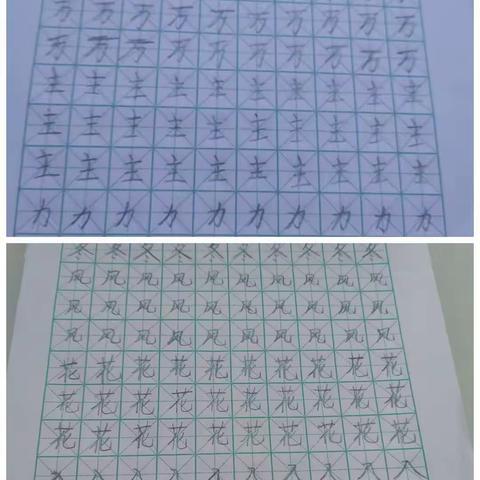 万万万万万万万万万万
万万万万万万万万万万
主主主主主主主主主主
主主主主主主主主主主
主主主主主主主主主主
力力力力力力力力力力
冬冬冬冬冬冬冬冬冬冬
风风风风风风风风风风
风风风风风风风风风风
风风风风风风风风风风
花花花花花花花花花花
花花花花花花花花花花
花花花花花花花花花花